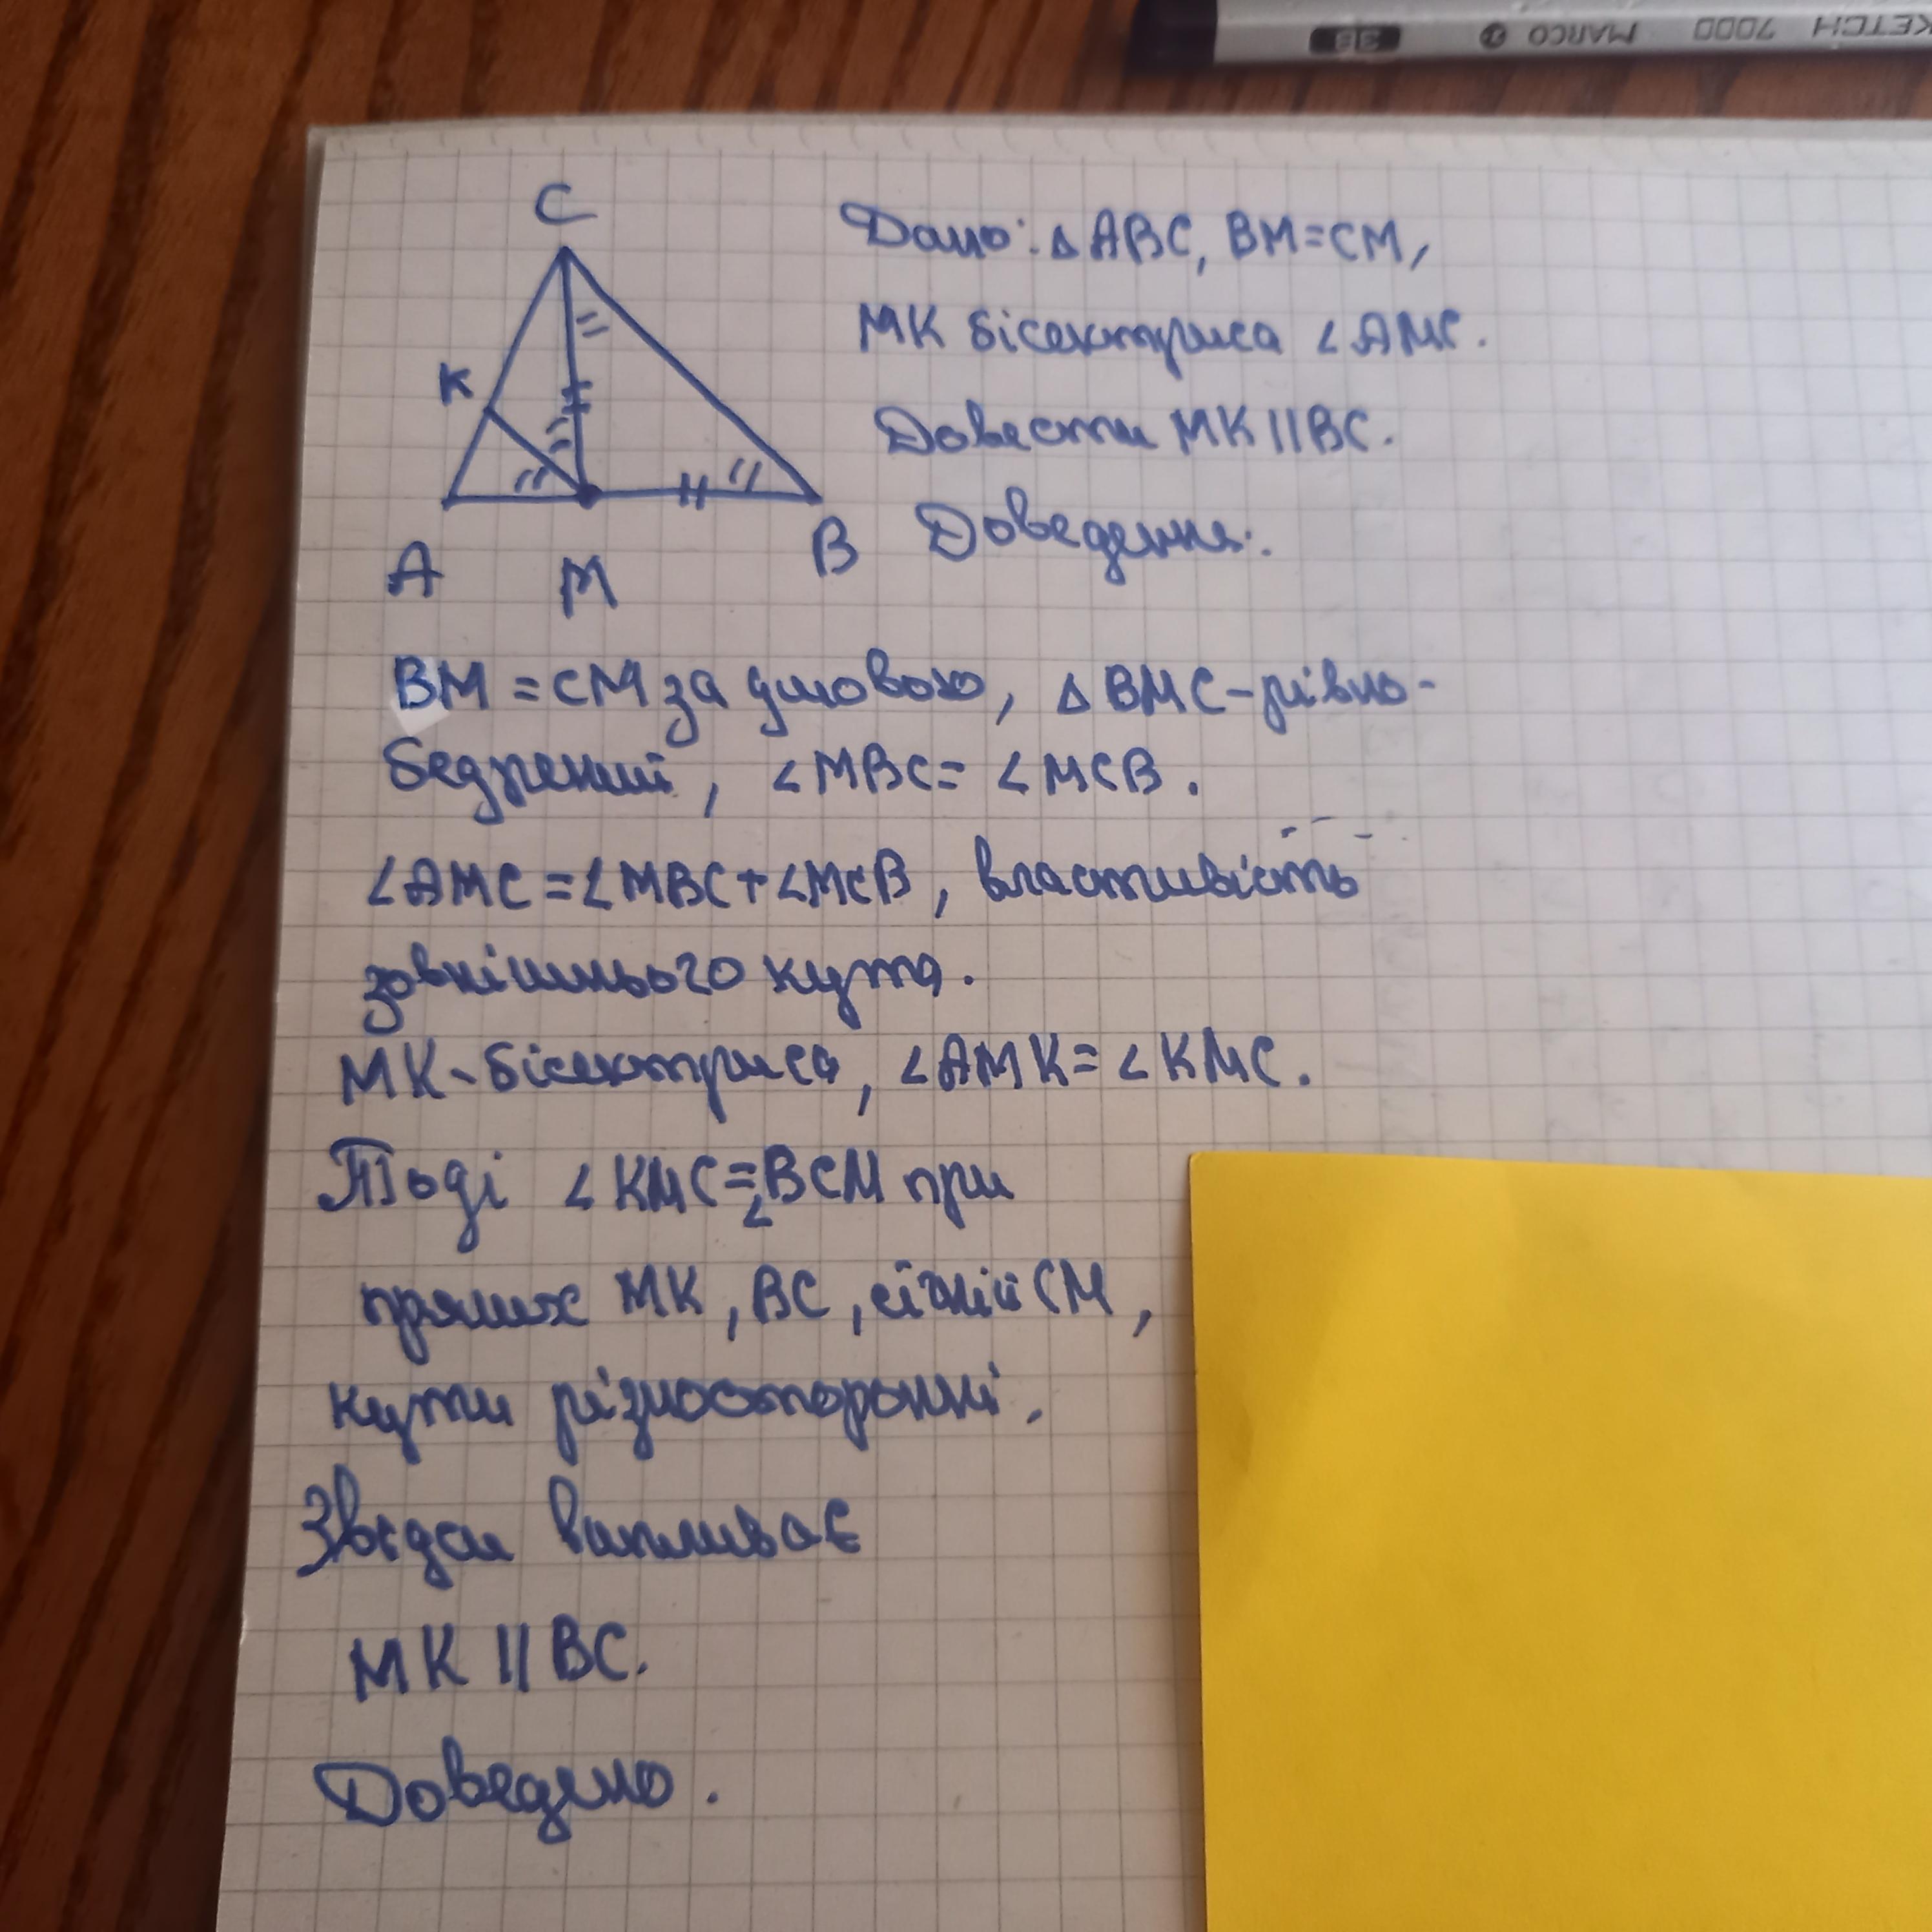 KETCH 7000 MARCO 3B
C
K
A
M
B
Дано: △ ABC, BM=CM,
MK бісектриса ∠AMC.
Довести MK || BC.
Доведення:.
BM = CM за умовою, △ BMC – рівно-
бедрений, ∠MBC = ∠MCB.
∠AMC = ∠MBC + ∠MCB, властивість
зовнішнього кута.
MK - бісектриса, ∠AMK = ∠KMC.
Тоді ∠KMC = ∠BCM при
прямих MK, BC, січній CM,
кути різносторонні.
Звідси випливає
MK || BC.
Доведено.